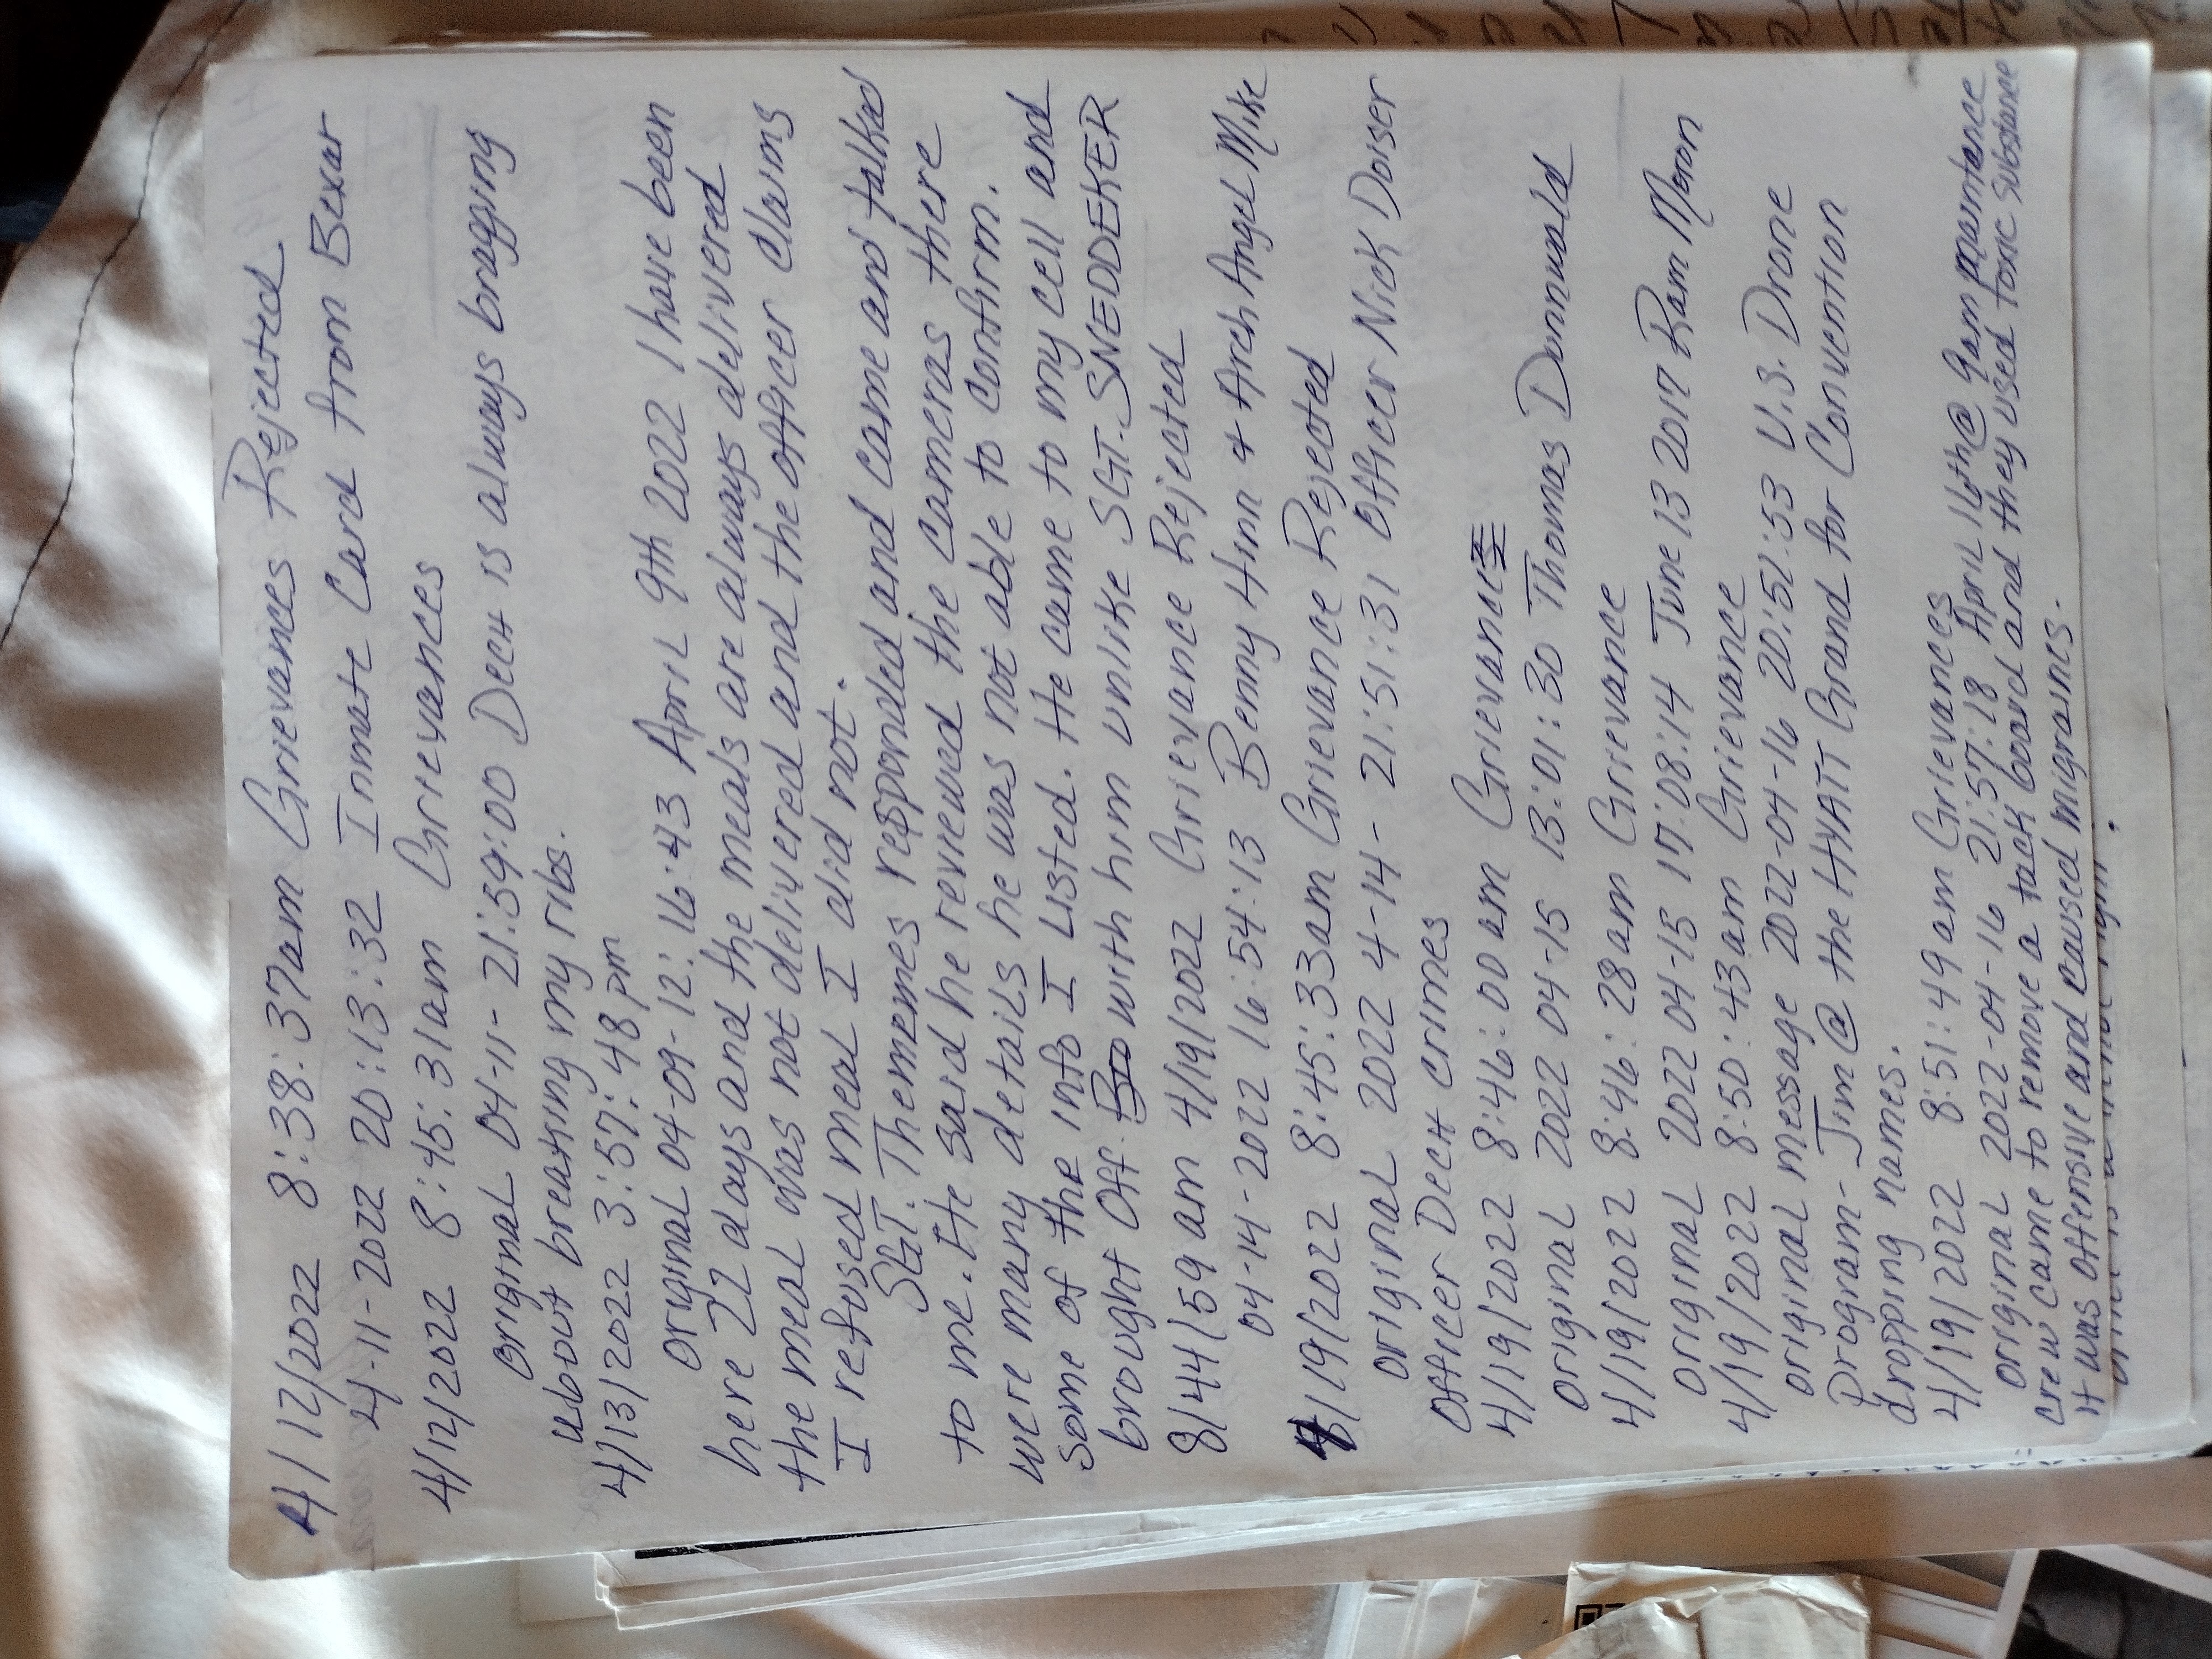 4/12/2022 8:38:37am Grievances Rejected
4-11-2022 20:13:32 Inmate Card from Bexar
4/12/2022 8:45:31am Grievances
Original 04-11- 21:59:00 Deck is always bragging
about breaking my ribs.
4/13/2022 3:57:48pm
Original 04-09-12:16:43 April 9th 2022 I have been
here 22 days and the meals are always delivered
the meal was not delivered and the officer claims
I refused meal I did not.
SGT. Thememes responded and came and talked
to me. He said he reviewed the cameras there
were many details he was not able to confirm.
Some of the info I Listed. He came to my cell and
brought Off. with him unlike SGT. SNEDDEKER
8/44/59 am 4/19/2022 Grievance Rejected
04-14-2022 16:54:13 Benny Hinn & Arch Angel Mike
4/19/2022 8:45:33am Grievance Rejected
Original 2022 4-14- 21:51:31 Officer Nick Doiser
Officer Deck crimes
4/19/2022 8:46:00 am Grievance
Original 2022 04-15 13:01:30 Thomas Dannwald
4/19/2022 8:46:28am Grievance
Original 2022 04-15 17:08:14 June 13 2017 Ram
4/19/2022 8:50:43am Grievance
original message 2022-04-16 20:51:53 U.S. Drone
Program- Jim @ the HYATT Grand for Convention
dropping names.
4/19/2022 8:51:49am Grievances
Original 2022-04-16 21:57:18 April 16th@ 9am maintance
crew came to remove a tack board and they used toxic substance
it was offensive and caused migraines.